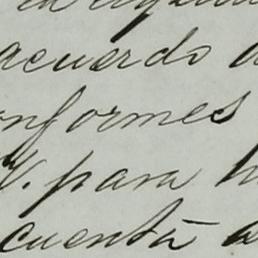 acuerdo
nformes
V. para
cuenta a